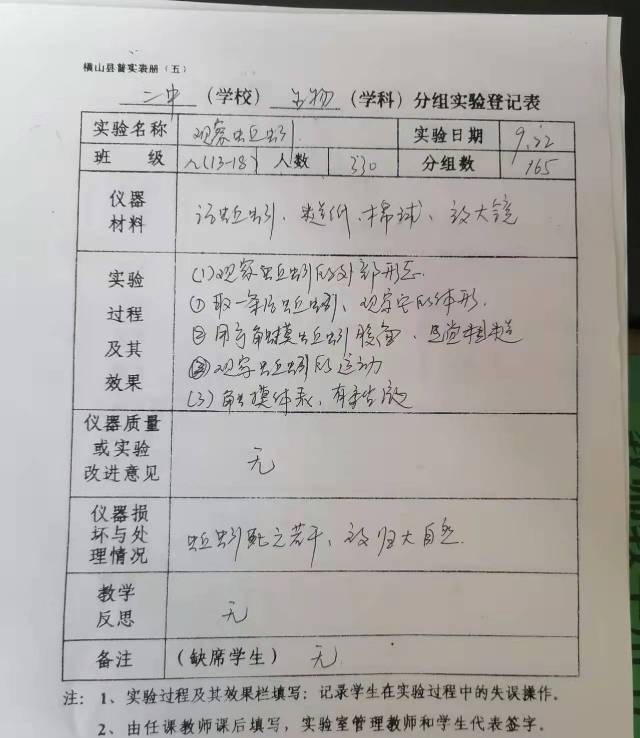 横山县普实表册（五）
二中（学校）生物（学科）分组实验登记表
实验名称 观察蚯蚓 实验日期 9.22
班 级 八(13-18) 人数 330 分组数 165
仪器
材料
活蚯蚓、糙纸、棉球、放大镜
实验
过程
及其
效果
(1)观察蚯蚓的外部形态.
① 取一条活蚯蚓、观察它的体形.
② 用手触摸蚯蚓腹面、感觉粗糙
观察蚯蚓的运动
(3) 触摸体表、有
仪器质量
或实验
改进意见
无
仪器损
坏与处
理情况
蚯蚓死亡若干、放归大自然.
教学
反思
无
备注 (缺席学生) 无.
注：1、实验过程及其效果栏填写：记录学生在实验过程中的失误操作。
2、由任课教师课后填写，实验室管理教师和学生代表签字。